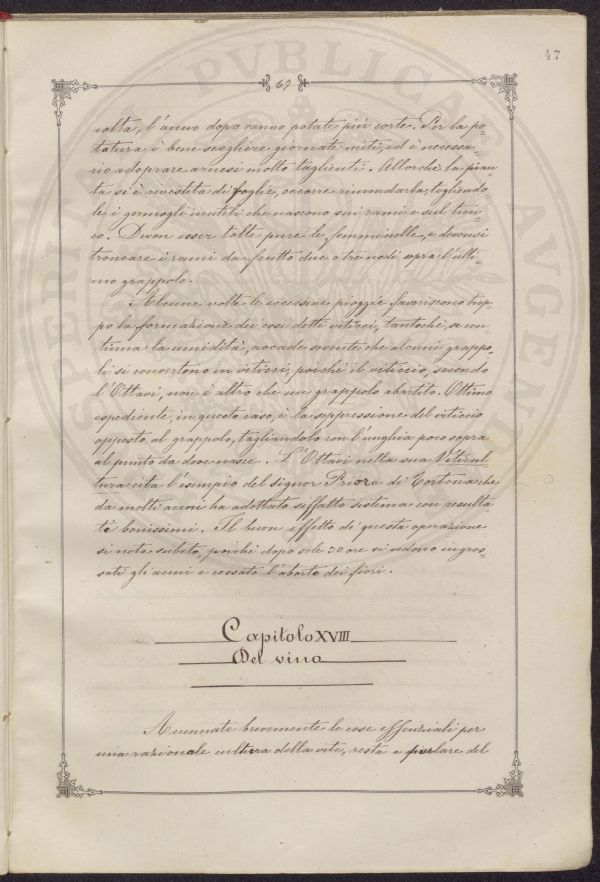 47
67
volta, l'anno dopo vanno potati più corte. Per la po-
tatura è bene scegliere giornate miti, ed è necessa-
rio adoprare arnesi molto taglienti. Allorché la pian-
ta si è rivestita di foglie, occorre rimondarla, togliendo-
le i germogli inutili che nascono sui rami e sul tron-
co. Devon esser tolte pure le femminelle, e devonsi
troncare i rami da frutto due o tre nodi sopra l'ulti-
mo grappolo.
Alcune volte le eccessive pioggie favoriscono trop-
po la formazione dei così detti viticci, tantoché, se con-
tinua la umidità, accade sovente che alcuni grappo-
li si convertono in viticci, poiché il viticcio, secondo
l'Ottavi, non è altro che un grappolo abortito. Ottimo
espediente, in questo caso, è la soppressione del viticcio
opposto al grappolo, tagliandolo con l'unghia poco sopra
al punto da dove nasce. L'Ottavi nella sua Viticul-
tura cita l'esempio del signor Priora di Tortona che
da molti anni ha adottato siffatto sistema con resulta
ti bonissimi. Il buon effetto di questa operazione
si nota subito, poiché dopo sole 30 ore si vedono ingros-
sati gli acini e cessato l'aborto dei fiori.
Capitolo XVIII
Del vino
Accennate brevemente le cose essenziali per
una razionale cultura della vite, resta a parlare del
PVBLICAE
AVGENDAE